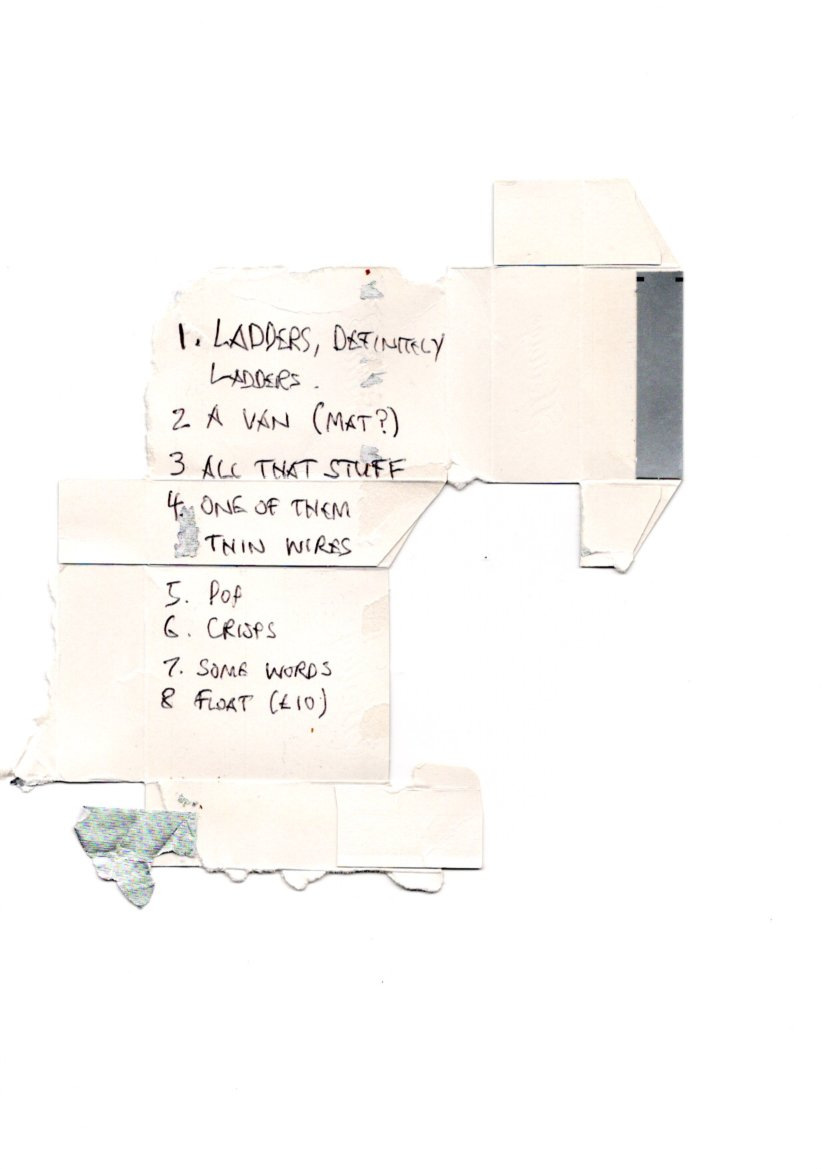 1. LADDERS, DEFINITELY
LADDERS.
2 A VAN (MAT?)
3 ALL THAT STUFF
4. ONE OF THEM
THIN WIRES
5. POP
6. CRISPS
7. SOME WORDS
8 FLOAT (£10)